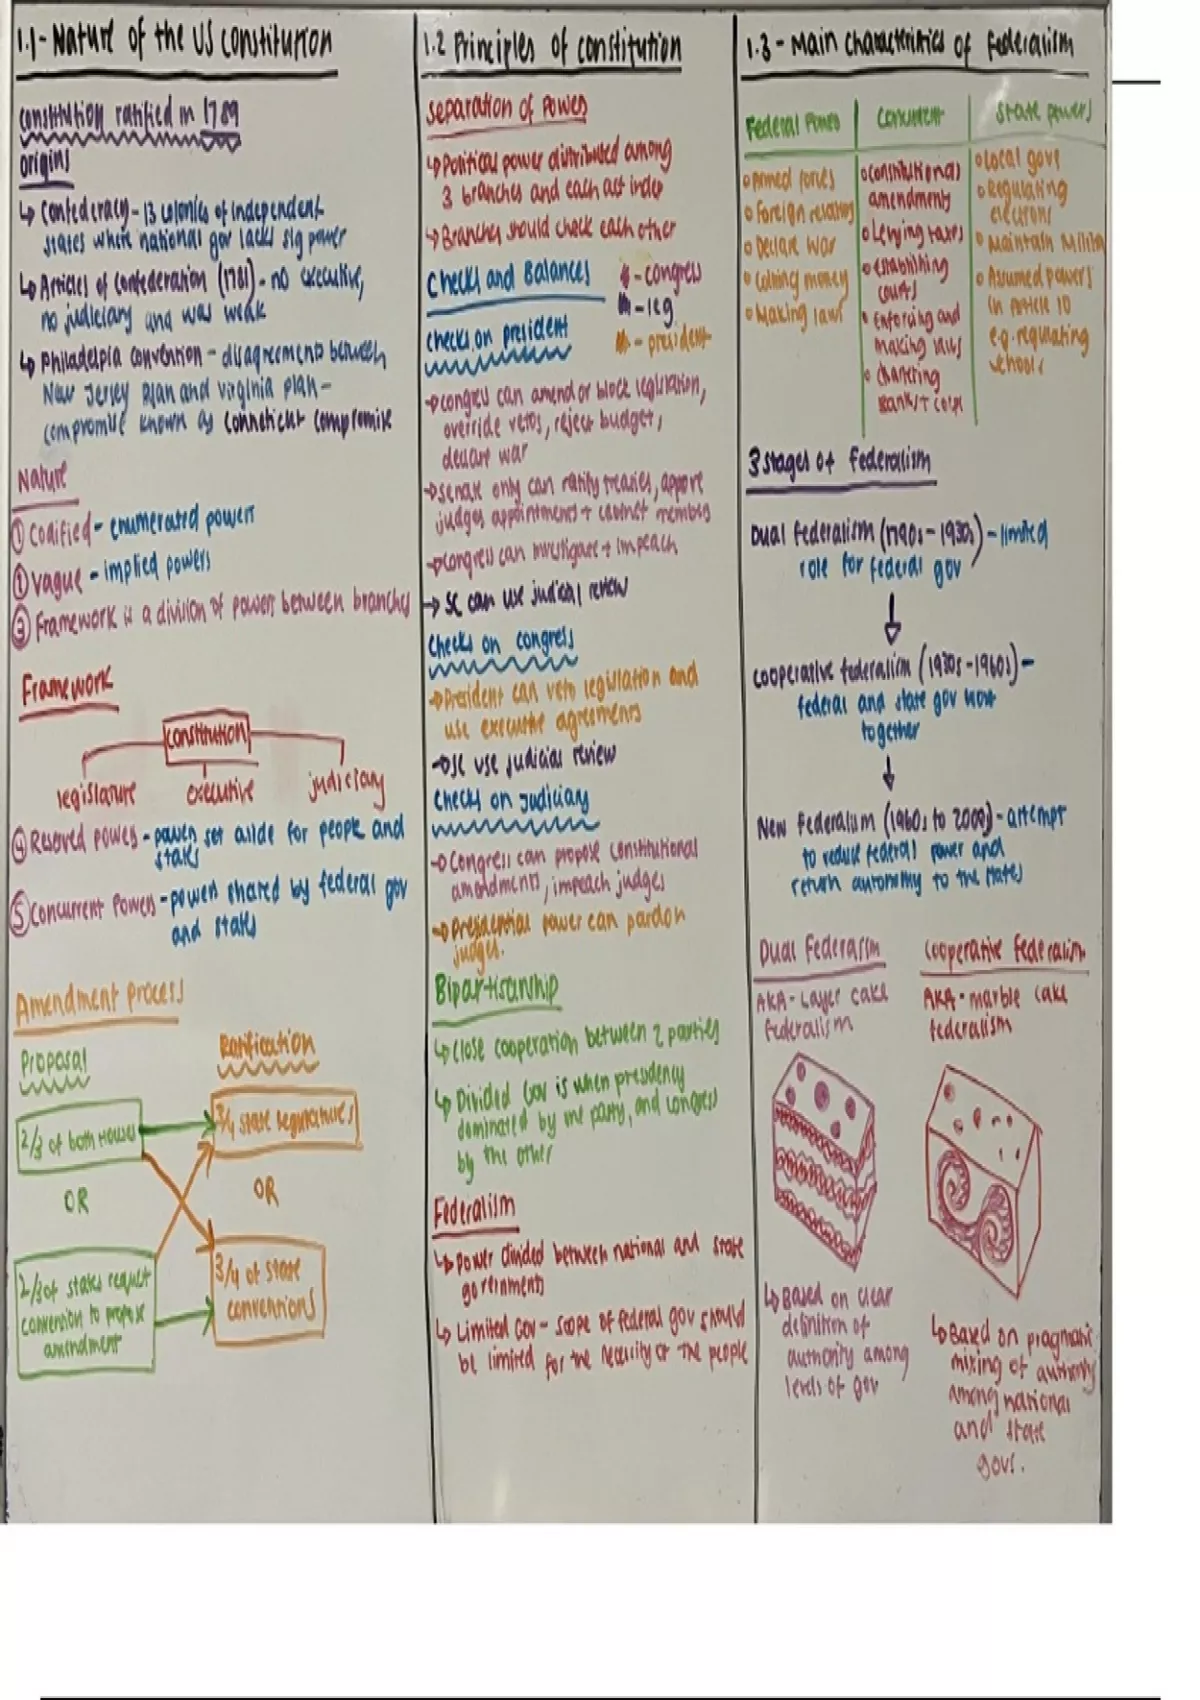 1.1 - Nature of the US constitution
constitution ratified in 1789
origins
↳ Confederacy - 13 colonies of independent
states where national gov lacks sig power
↳ Articles of confederation (1781) - no executive,
no judiciary and was weak
↳ Philadelpia convention - disagreements between
New Jersey plan and virginia plan -
compromise known as Conneticut compromise
Nature
① Codified - enumerated powers
① Vague - implied powers
③ Framework is a division of powers between branches
Framework
constitution
legislature executive judiciary
④ Reserved powers - powers set aside for people and
states
⑤ Concurrent Powers - powers shared by federal gov
and states
Amendment process
Proposal
Ratification
2/3 of both Houses
3/4 state legislatures
OR
OR
2/3 of states request
convention to propose
amendment
3/4 of state
conventions
1.2 Principles of constitution
Separation of Power
↳ Political power distributed among
3 branches and each act indep
↳ Branches should check each other
Checks and Balances
- congress
- leg
- president
checks on president
→ congress can amend or block legislation,
override vetos, reject budget,
declare war
→ senate only can ratify treaties, approve
judges appointments + cabinet members
→ congress can investigate + impeach
→ SC can use judicial review
Checks on congress
→ President can veto legislation and
use executive agreements
→ SC use judicial review
Checks on Judiciary
→ Congress can propose constitutional
amendments, impeach judges
→ Presidential power can pardon
judges.
Bipartisanship
↳ Close cooperation between 2 parties
↳ Divided Gov is when presidency
dominated by one party, and congress
by the other
Federalism
↳ Power divided between national and state
governments
↳ Limited Gov - scope of federal gov should
be limited for the necessity of the people
1.3 - Main characteristics of federalism
Federal Powers
Concurrent
State powers
o Armed forces
o Foreign relations
o Declare war
o Coining money
o Making laws
o constitutional
amendments
o Levying taxes
o establishing
courts
o Enforcing and
making laws
o chartering
banks + corps
o Local govt
o Regulating
elections
o Maintain militia
o Assumed powers
in Article 10
e.g. regulating
schools
3 stages of federalism
Dual federalism (1790s - 1930s) - limited
role for federal gov
cooperative federalism (1930s - 1960s) -
federal and state gov work
together
New Federalism (1960s to 2000s) - attempt
to reduce federal power and
return autonomy to the states
Dual Federalism
AKA - Layer cake
federalism
↳ Based on clear
definition of
authority among
levels of gov
Cooperative federalism
AKA - marble cake
federalism
↳ Based on pragmatic
mixing of authority
among national
and state
govs.